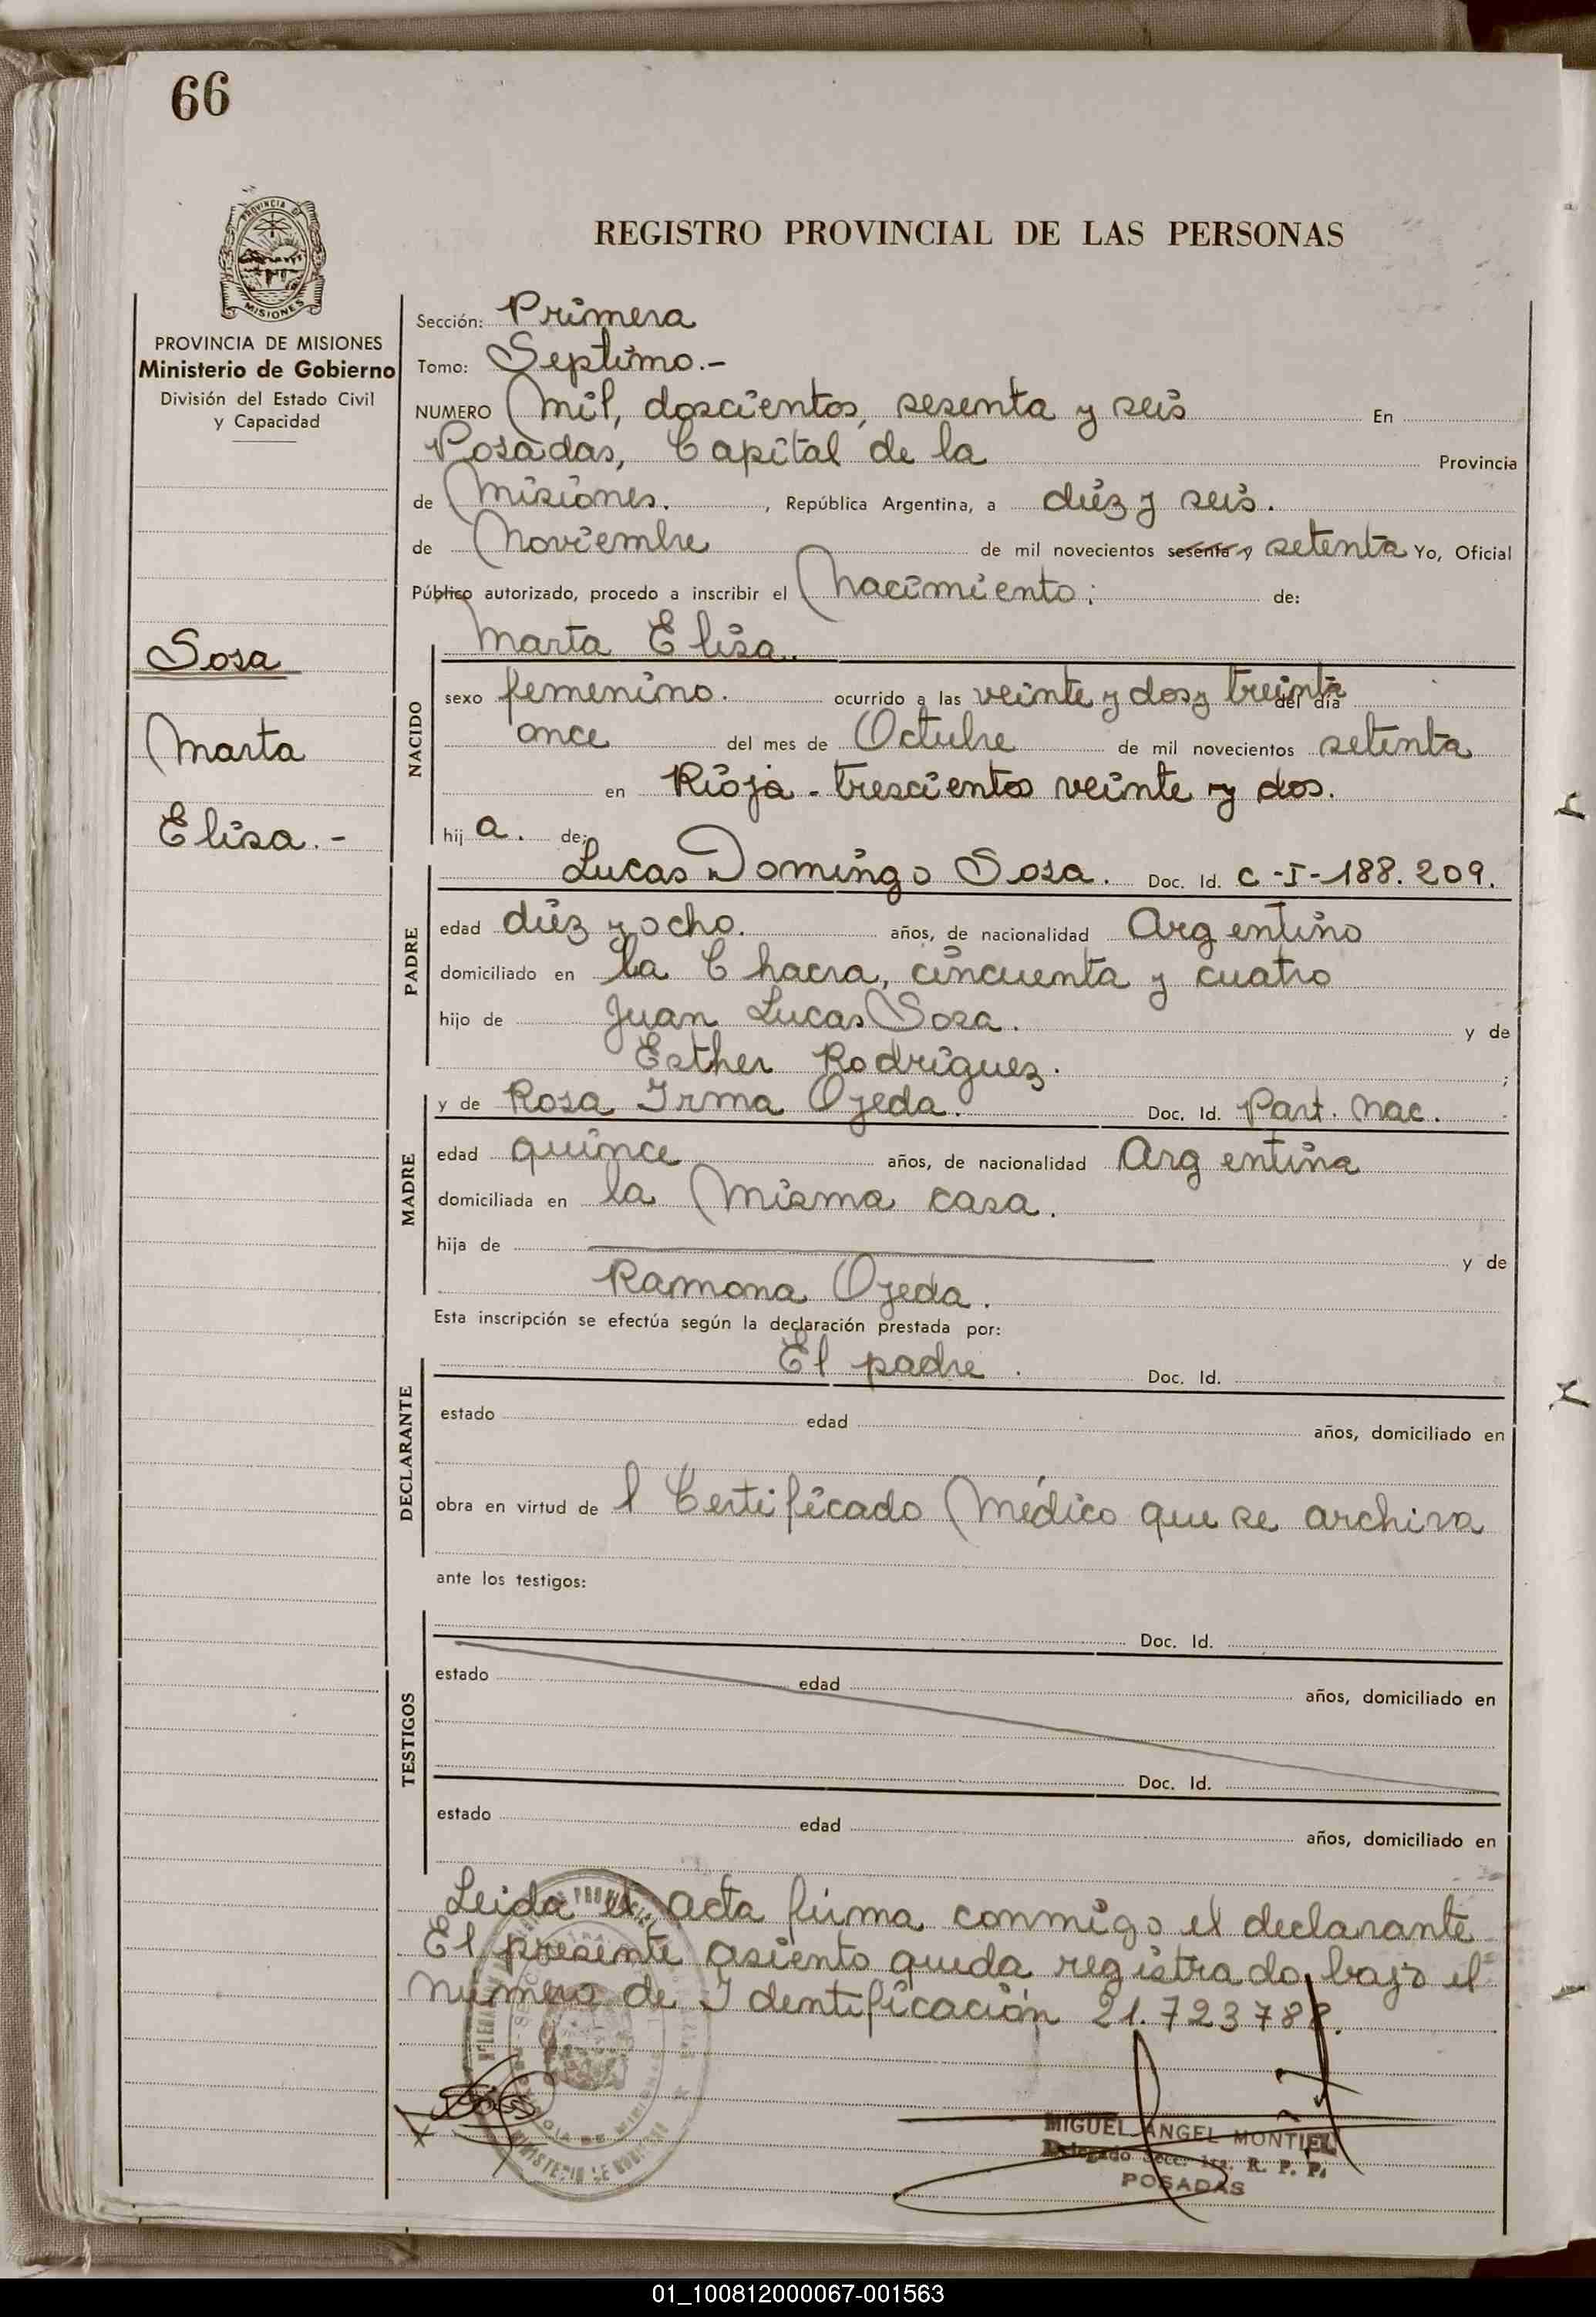 66
PROVINCIA DE
MISIONES
PROVINCIA DE MISIONES
Ministerio de Gobierno
División del Estado Civil
y Capacidad
Sosa
Marta
Elisa.-
REGISTRO PROVINCIAL DE LAS PERSONAS
Sección: Primera
Tomo: Septimo.-
NUMERO Mil, doscientos, sesenta y seis En
Posadas, Capital de la Provincia
de Misiones. , República Argentina, a diéz y seis.
de Noviembre de mil novecientos sesenta y setenta Yo, Oficial
Público autorizado, procedo a inscribir el Nacimiento: de:
Marta Elisa.
NACIDO
sexo femenino. ocurrido a las veinte y dos y treinta del día
once del mes de Octubre de mil novecientos setenta
en Rioja - trescientos veinte y dos.
hij a. de:
PADRE
Lucas Domingo Sosa. Doc. Id. C-I-188.209.
edad diéz y ocho. años, de nacionalidad Argentino
domiciliado en la Chacra, cincuenta y cuatro
hijo de Juan Lucas Sosa. y de
Esther Rodriguez. ;
MADRE
y de Rosa Irma Ojeda. Doc. Id. Part. Nac.
edad quince años, de nacionalidad Argentina
domiciliada en la Misma casa.
hija de y de
Ramona Ojeda.
Esta inscripción se efectúa según la declaración prestada por:
DECLARANTE
El padre . Doc. Id.
estado edad años, domiciliado en
obra en virtud de l Certificado Médico que se archiva
ante los testigos:
TESTIGOS
Doc. Id.
estado edad años, domiciliado en
Doc. Id.
estado edad años, domiciliado en
Leida el acta firma conmigo el declarante
El presente asiento queda registrado bajo el
numero de Identificación 21.723788.
MIGUEL ANGEL MONTIEL
Delegado Secc. 1ra. R. P. P.
POSADAS
01_100812000067-001563